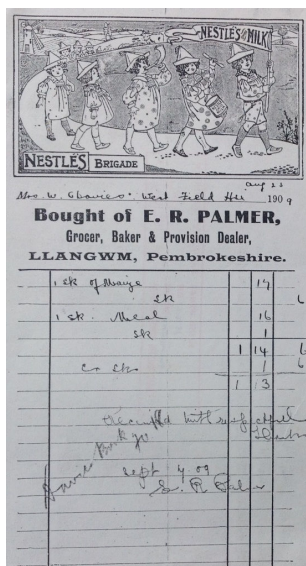 NESTLÉ'S MILK
NESTLÉ'S BRIGADE
Aug 23
Mrs. W. West Field 1909
Bought of E. R. PALMER,
Grocer, Baker & Provision Dealer,
LLANGWM, Pembrokeshire.
1 sk of Maize 17
sk 6
1 sk. Meal 16
sk 1
1 14 6
sks 1 6
1 13
Received with
Sept 4 09
E. R. Palmer